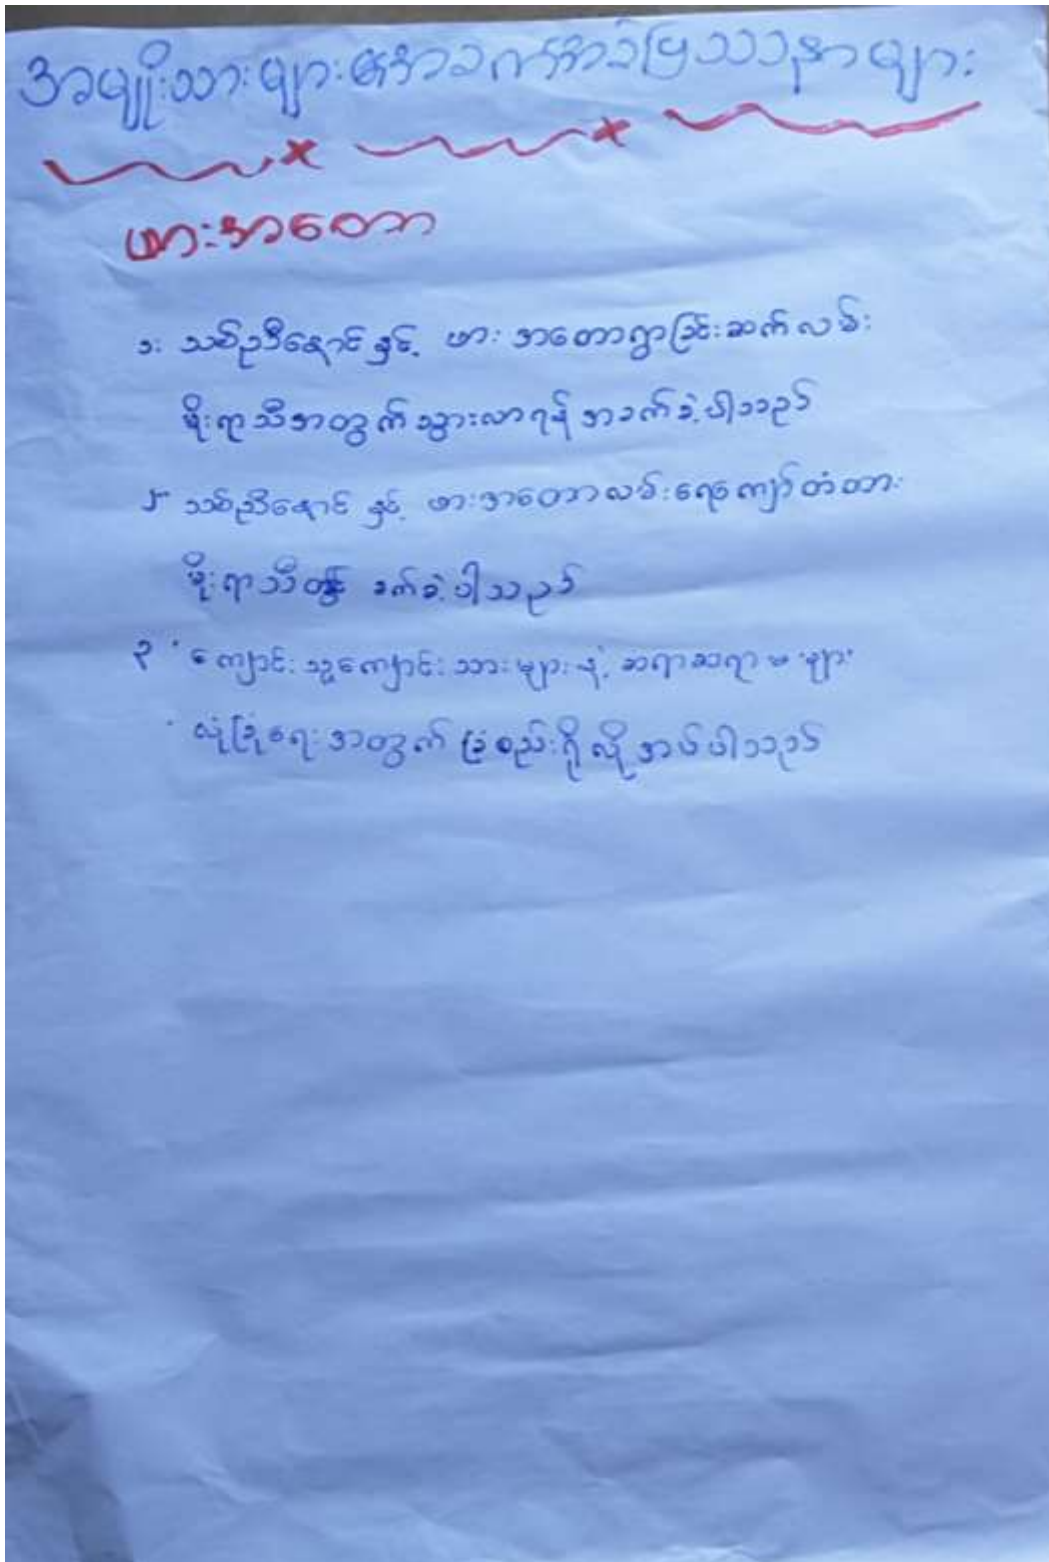 အမျိုးသားများ၏အခက်အခဲပြဿနာများ
ဖားအတော
၁။ သစ်ညီနောင်နှင့် ဖားအတောရွာခြင်းဆက်လမ်း
မိုးရာသီအတွက်သွားလာရန်အခက်ခဲ့ပါသည်
၂။ သစ်ညီနောင်နှင့် ဖားအတောလမ်းရေကျော်တံတား
မိုးရာသီတွင် ခက်ခဲ့ပါသည်
၃။ ကျောင်းသူကျောင်းသားများနဲ့ ဆရာဆရာမများ
လုံခြုံရေးအတွက် ခြံစည်းရိုလိုအပ်ပါသည်